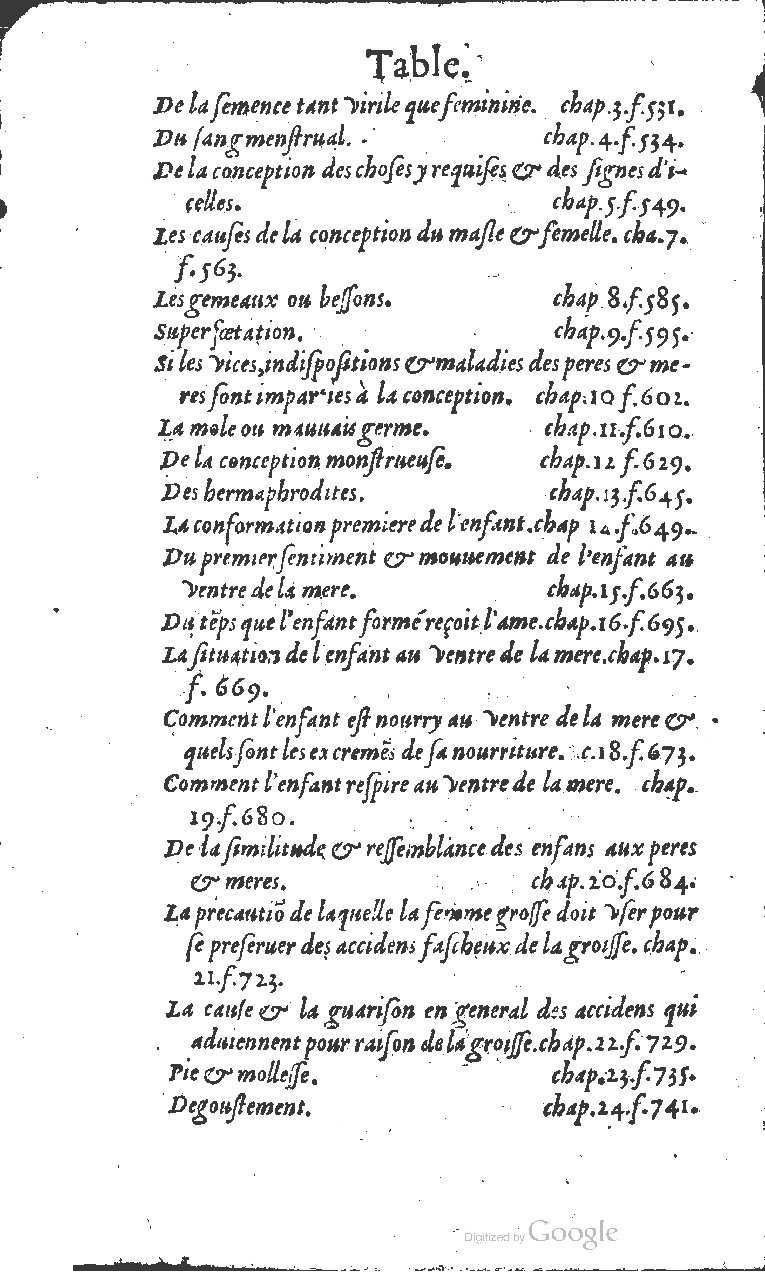 Table.
De la ſemence tant virile que feminine. chap.3.f.531.
Du ſang menſtrual. chap.4.f.534.
De la conception des choſes y requiſes & des ſignes d'i-
celles. chap.5.f.549.
Les cauſes de la conception du maſle & femelle. cha.7.
f.563.
Les gemeaux ou beſſons. chap 8.f.585.
Superfœtation. chap.9.f.595.
Si les vices,indiſpoſitions & maladies des peres & me-
res ſont imparties à la conception. chap.10 f.602.
La mole ou mauuais germe. chap.11.f.610.
De la conception monſtrueuſe. chap.12 f.629.
Des hermaphrodites. chap.13.f.645.
La conformation premiere de l'enfant.chap 14.f.649.
Du premier ſentiment & mouuement de l'enfant au
ventre de la mere. chap.15.f.663.
Du tẽps que l'enfant formé reçoit l'ame.chap.16.f.695.
La ſituation de l'enfant au ventre de la mere.chap.17.
f. 669.
Comment l'enfant eſt nourry au ventre de la mere &
quels ſont les excremẽs de ſa nourriture. c.18.f.673.
Comment l'enfant reſpire au ventre de la mere. chap.
19.f.680.
De la ſimilitude & reſſemblance des enfans aux peres
& meres. chap.20.f.684.
La precautiõ de laquelle la femme groſſe doit vſer pour
ſe preſeruer des accidens faſcheux de la groiſſe. chap.
21.f.723.
La cauſe & la guariſon en general des accidens qui
aduiennent pour raiſon de la groiſſe.chap.22.f.729.
Pie & molleſſe. chap.23.f.735.
Degouſtement. chap.24.f.741.
Digitized by Google